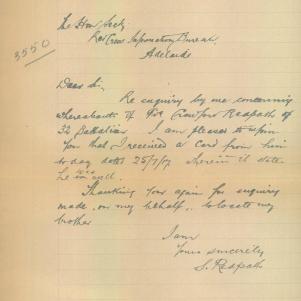 3550
The Hon Secty.
Red Cross Information Bureau.
Adelaide
Dear Sir,
Re enquiry by me concerning
whereabouts of Pte Crawford Redpath of
32 Battalion. I am pleased to inform
you that I received a card from him
to day dated 25/7/17 wherein it states
he was well.
Thanking you again for enquiry
made, on my behalf, to locate my
brother
I am
Yours sincerely
S. Redpath